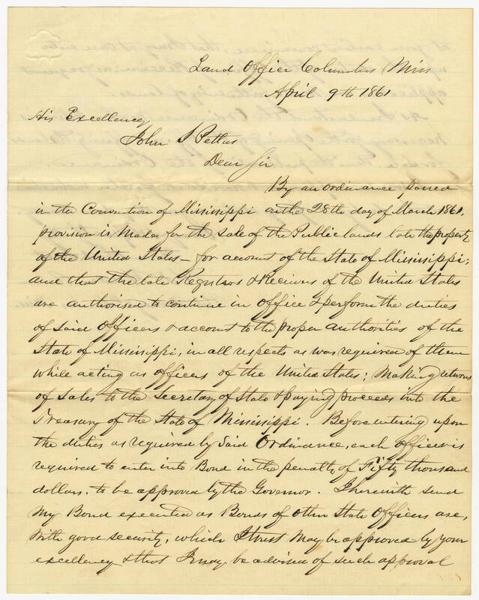 Land Office Columbus Miss
April 9th 1861
His Excellency
John J Pettus
Dear Sir
By an ordinance passed
in the Convention of Mississippi on the 28th day of March 1861,
provision is made for the sale of the Public lands late the property
of the United States – for account of the State of Mississippi;
and that the late Registers & Receivers of the United States
are authorised to continue in office & perform the duties
of said officers & account to the proper authorities of the
State of Mississippi, in all respects as was required of them
while acting as officers of the United States; Making returns
of Sales to the Secretary of State & paying proceeds into the
Treasury of the State of Mississippi. Before entering upon
the duties as required by said Ordinance, each officer is
required to enter into Bond in the penalty of Fifty thousand
dollars. to be approved by the Governor. I herewith send
my Bond executed as Bonds of other State Officers are,
with good security, which I trust may be approved by your
excellency & that I may be advised of such approval